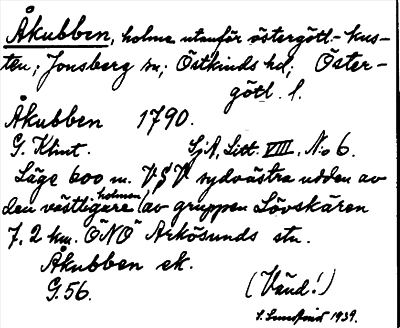 Åkubben, holme utanför östergötl. kus-
ten; Jonsberg sn; Östkinds hd; Öster-
götl. l.
Åkubben 1790.
G. Klint. SjA, Litt. VIII, No 6.
Läge 600 m. V§V sydvästra udden av
den västligare holmen av gruppen Lövskären
7,2 km. ÖNÖ Arkösunds stn.
Åkubben sk.
G.56.
(Vänd!)
1939.